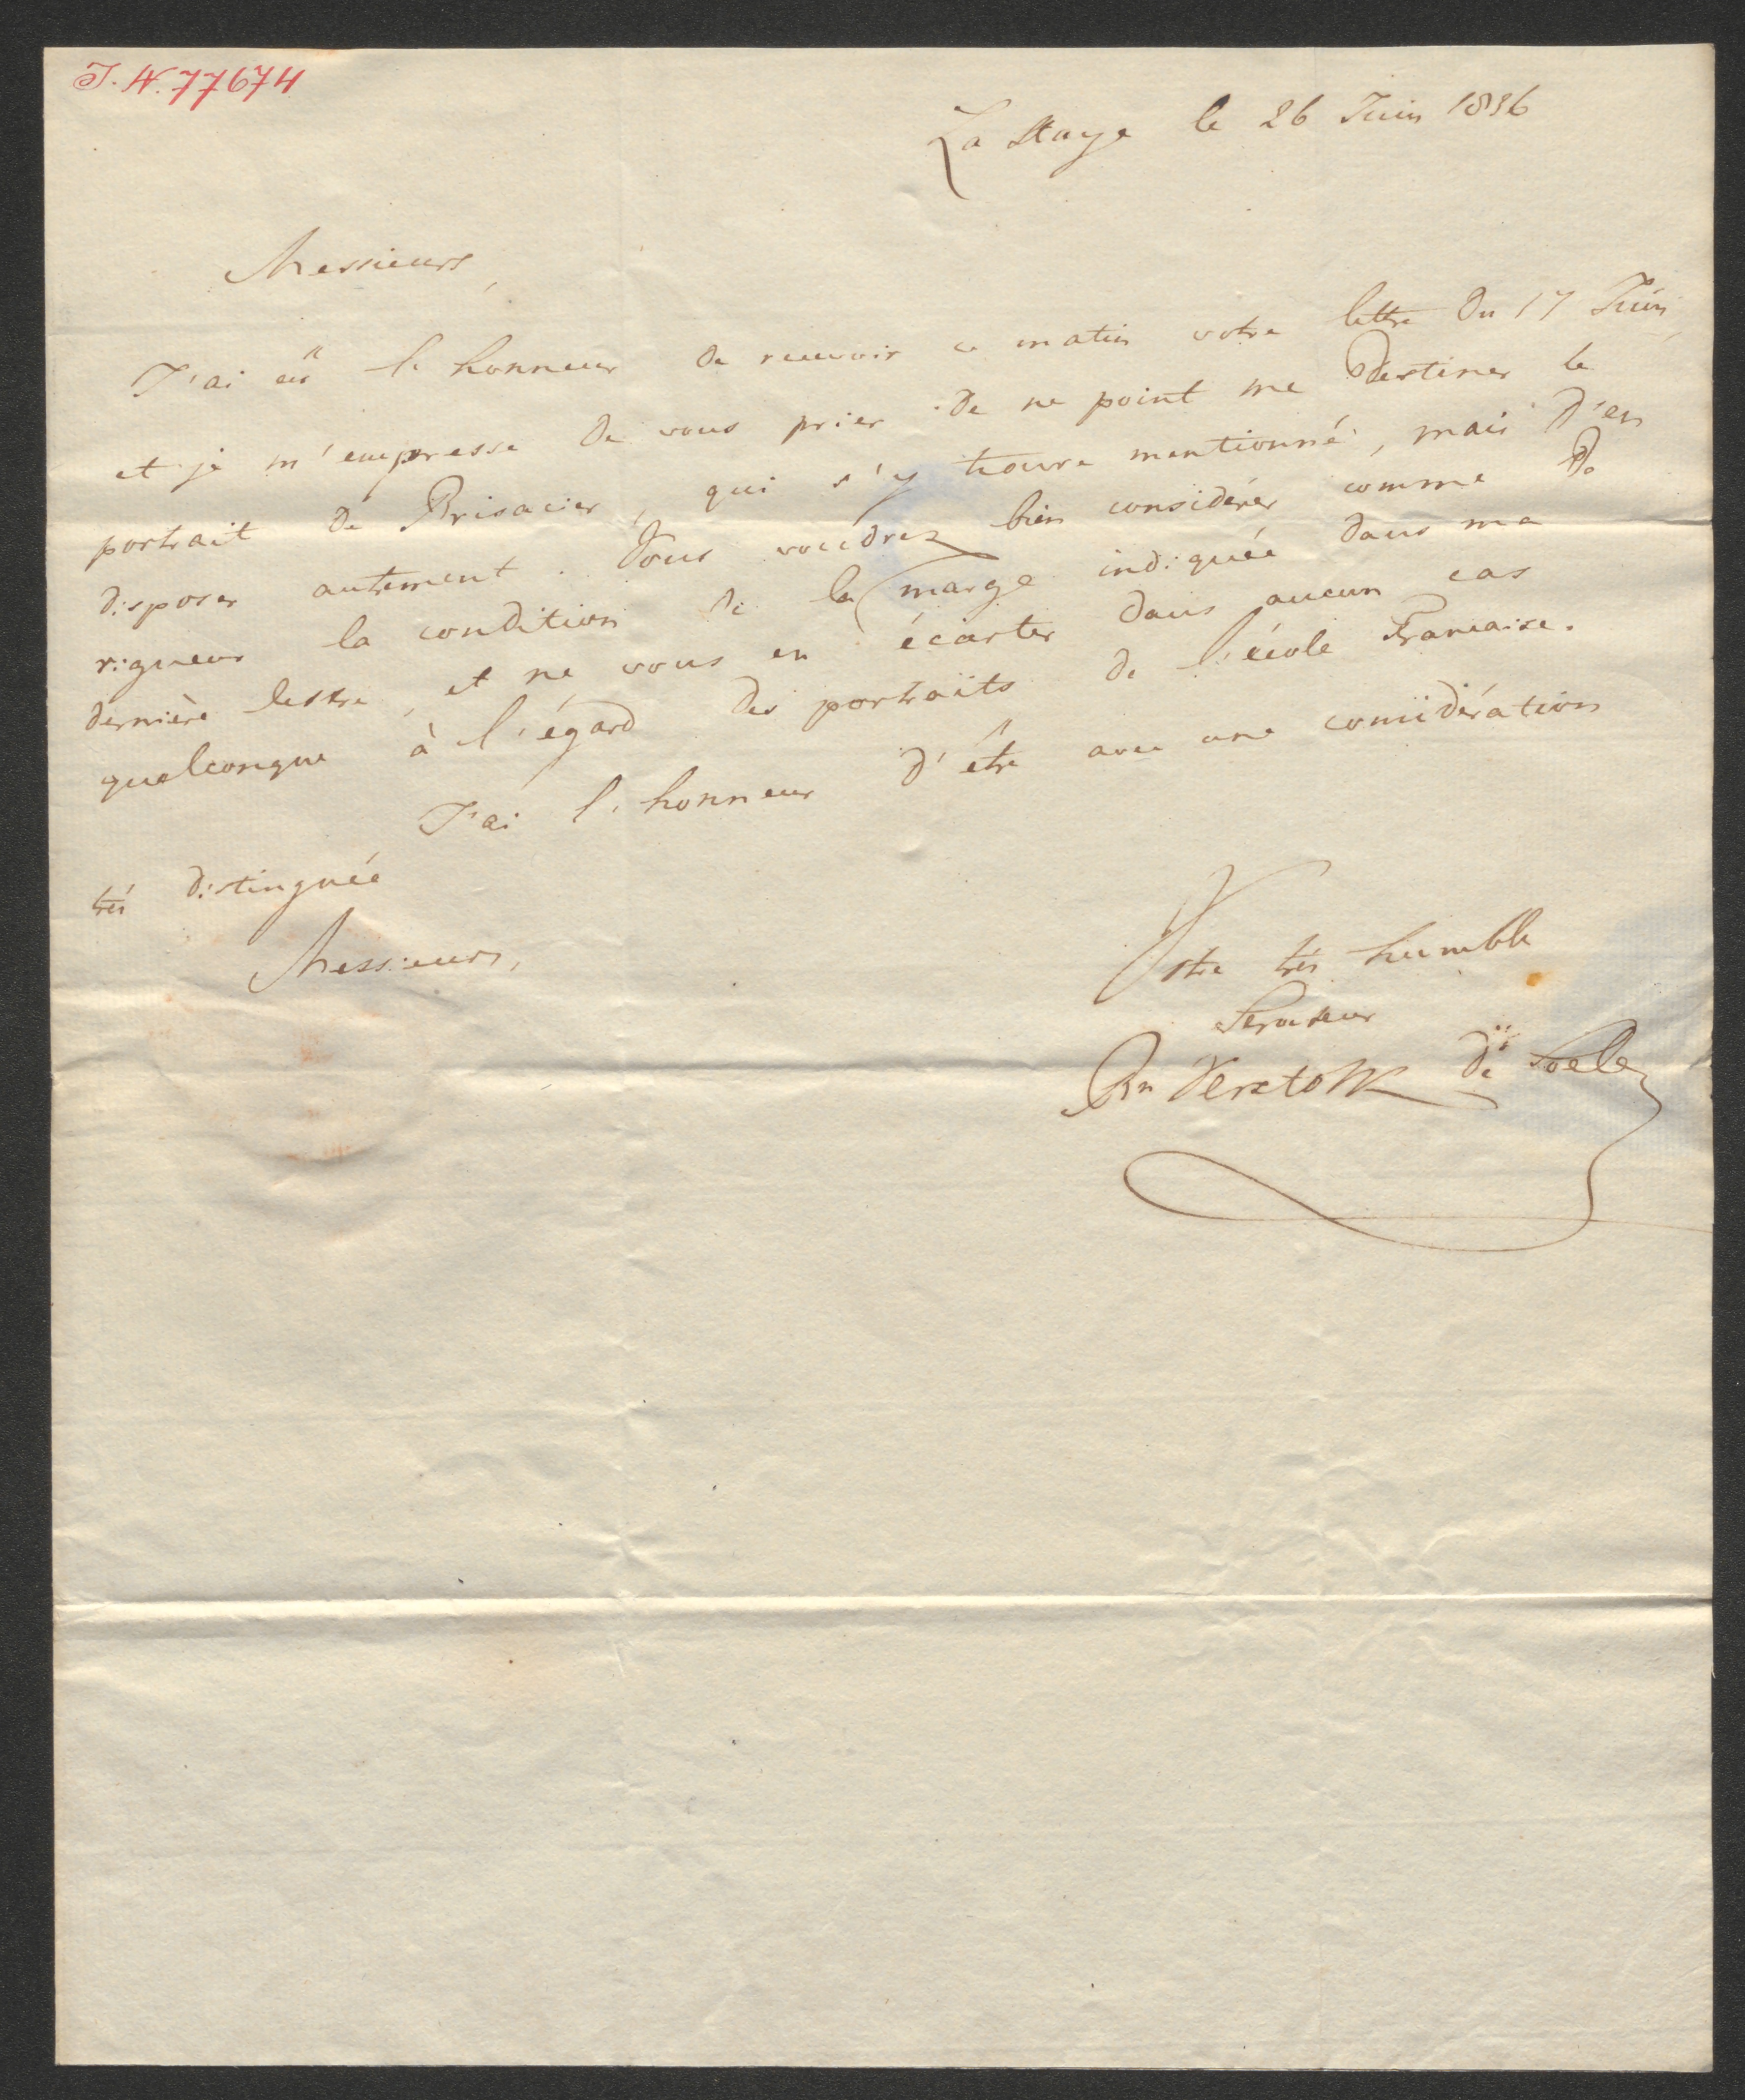 I. N. 77674
La Haye le 26 Juin 1836
Messieurs,
J'ai eû l'honneur de recevoir ce matin votre lettre du 17 Juin,
et je m'empresse de vous prier de ne point me destiner le
portrait de Brisacier, qui s'y trouve mentionné, mais d'en
disposer autrement. Vous voudrez bien considérer comme de
rigueur la condition de la marge indiquée dans ma
dernière lettre, et ne vous en écarter dans aucun cas
quelconque à l'égard des portraits de l'école Francaise.
J'ai l'honneur d'être avec une considération
très distinguée
Messieurs,
Votre très humble
Serviteur
Bn Verstolk de Soelen